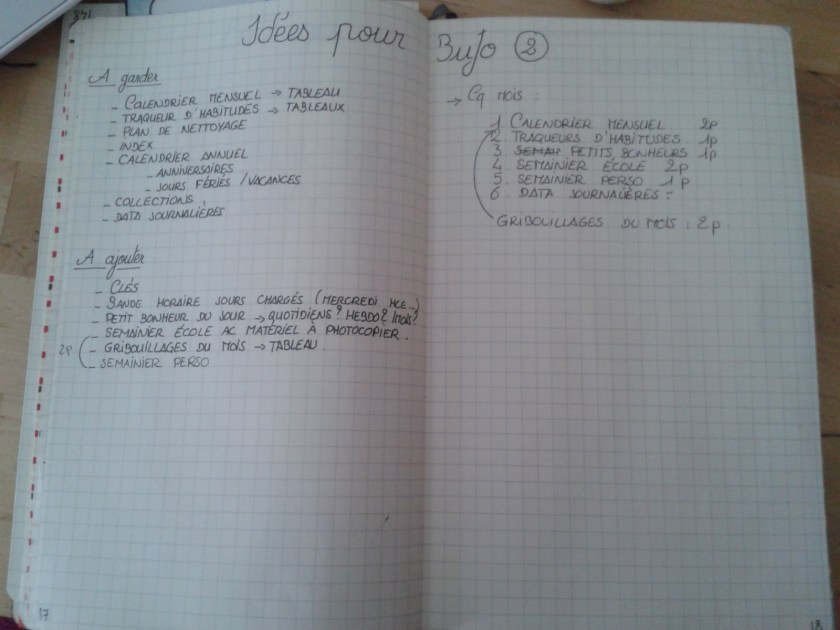 Idées pour BuJo 2
A garder
- CALENDRIER MENSUEL → TABLEAU
- TRAQUEUR D'HABITUDES → TABLEAUX
- PLAN DE NETTOYAGE
- INDEX
- CALENDRIER ANNUEL
- ANNIVERSAIRES
- JOURS FÉRIÉS / VACANCES
- COLLECTIONS
- DATA JOURNALIÈRES
A ajouter
- CLÉS
- BANDE HORAIRE JOURS CHARGÉS (MERCREDI HCE...)
- PETIT BONHEUR DU JOUR → QUOTIDIENS? HEBDO? MOIS?
- SEMAINIER ÉCOLE AC MATÉRIEL À PHOTOCOPIER.
2p - GRIBOUILLAGES DU MOIS → TABLEAU.
- SEMAINIER PERSO
17
→ Cq mois :
1 CALENDRIER MENSUEL 2p
2. TRAQUEURS D'HABITUDES. 1p
3. SEMAI PETITS BONHEURS 1p
4. SEMAINIER ÉCOLE 2p
5. SEMAINIER PERSO 1p
6. DATA JOURNALIÈRES -
GRIBOUILLAGES DU MOIS : 2p
18